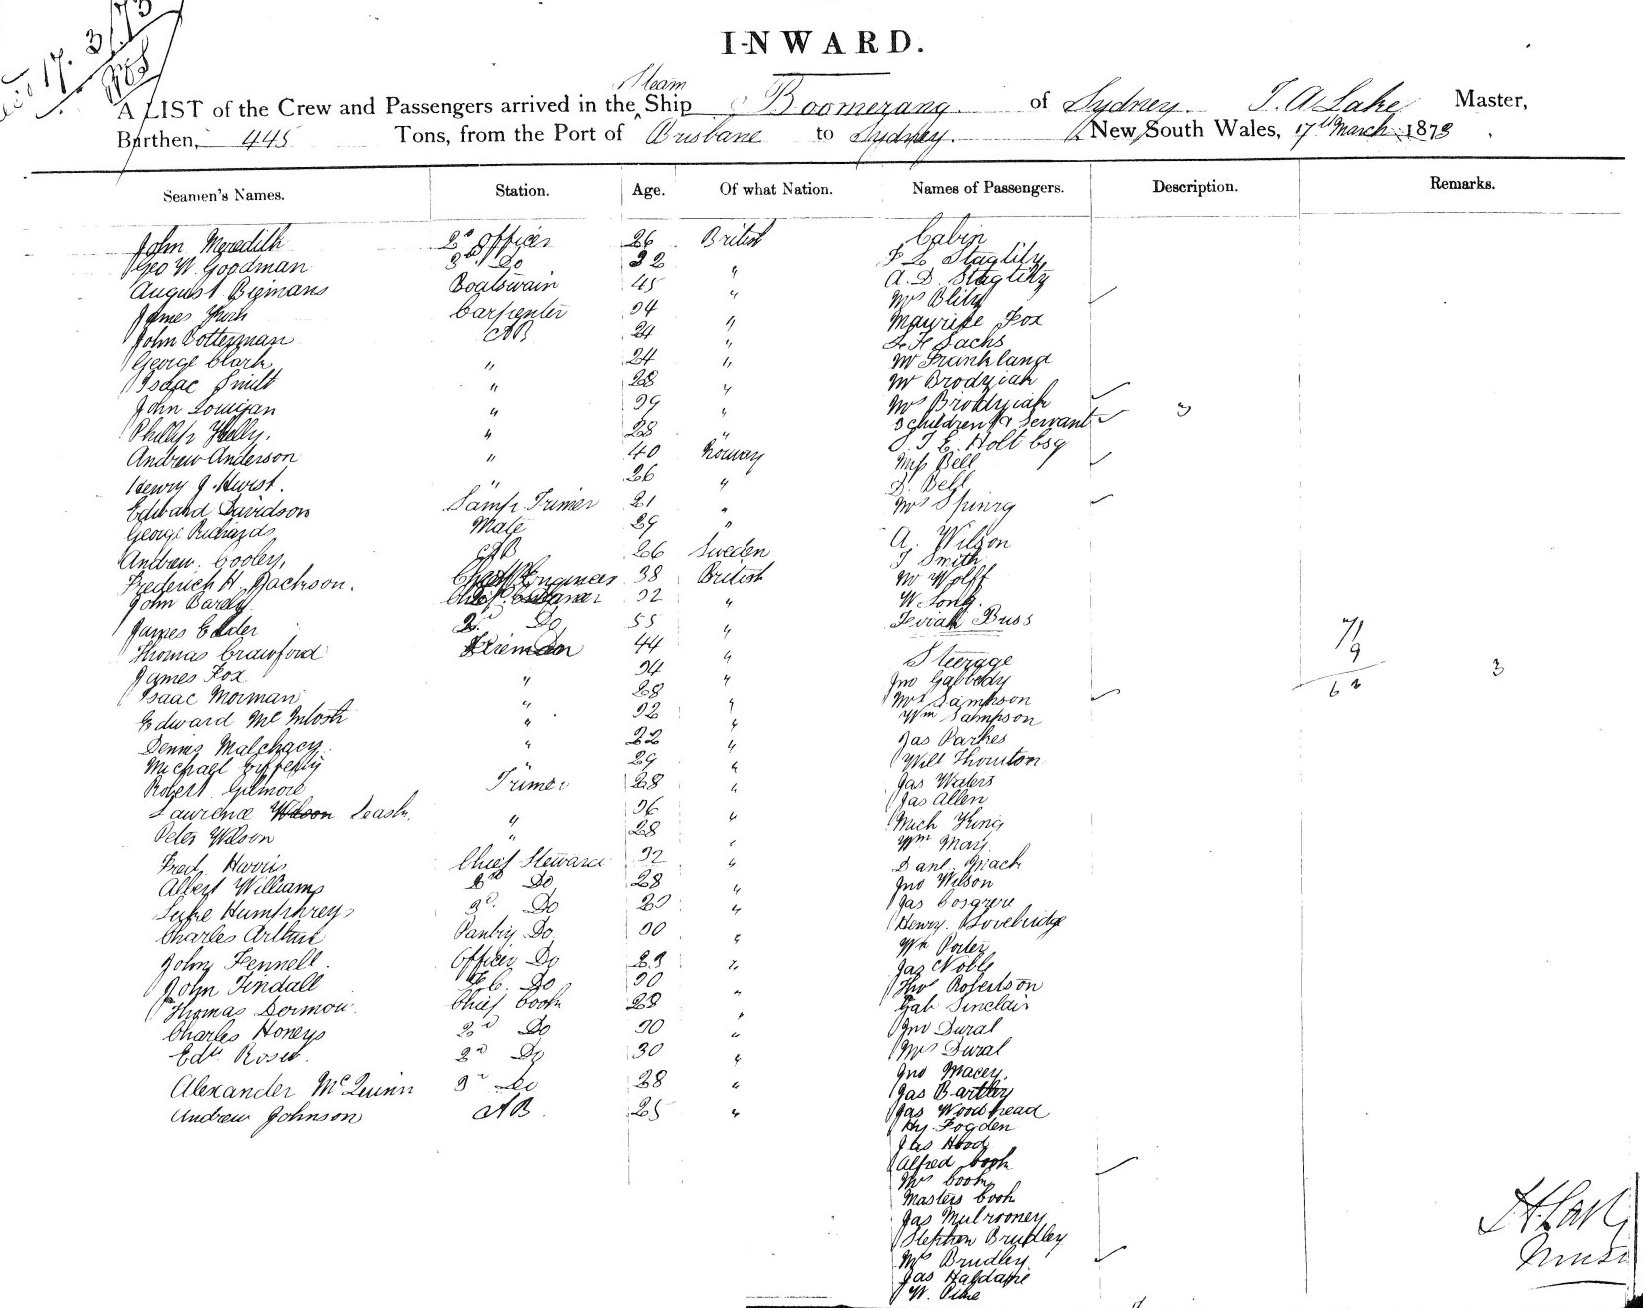 17.3/73
INWARD.
Steam
A LIST of the Crew and Passengers arrived in the Ship Boomerang of Sydney. T. A. Lake Master,
Burthen, 445 Tons, from the Port of Brisbane to Sydney. New South Wales, 17th March 1873
Seamen's Names. Station. Age. Of what Nation. Names of Passengers. Description. Remarks.
John Meredith 2d Officer 26 British
Geo W. Goodman 3rd Do 32 "
August Bigmans Boatswain 45 "
James Carpenter 34 "
John Potterman AB 24 "
George Clark " 24 "
Isaac Smith " 28 "
John Lonigan " 39 "
Phillip Kelly. " 28 "
Andrew Anderson " 40 Norway
Henry J. Hurst. " 26 "
Edward Davidson Lamp Trimer 21 "
George Richards Mate 29 "
Andrew Cooley, AB 26 Sweden
Frederick H. Jackson. Chief Engineer 38 British
John Bardy 32 "
James Elder 2d Do 55 "
Thomas Crawford Fireman 44 "
James Fox " 34 "
Isaac Morman " 28 "
Edward McIntosh " 32 "
Dennis Malchacy " 22 "
Michael " 29 "
Robert Gilmore Trimer 28 "
Lawrence Wilson Leash. " 36 "
Peter Wilson " 28 "
Fred Harris Chief Steward 32 "
Albert Williams 2nd Do 28 "
Luke Humphreys 3d. Do 20 "
Charles Arthur Pantry Do 30 "
John Fennell Officer Do 23 "
John Tindall F.C. Do 30 "
Thomas Dermou Chief Cook 28 "
Charles Honeys 2nd Do 30 "
Edw. Rosed. 2nd Do 30 "
Alexander McQuinn 3d Do 28 "
Andrew Johnson AB. 25 "
Cabin
F L Staglily
A. D. Staglily
Mrs Blitz
Maurice Fox
F. Sachs
Mr Frankland
Mr Brodziah
Mrs Brodziah
3 children & Servant 3
T. E. Holt Esq
Miss Bell
D. Bell
Mrs Spinrg
A. Wilson
T Smith
Mr Wolff
W. Song
Buss
Steerage
Jno Gabbedy
Mrs Sampson
Wm Sampson
Jas Parkes
Will Thornton
Jas Waters
Jas Allen
Mich King
Wm May
Danl. Mack
Jno Wilson
Jas Cosgrere
Henry. Lovebridge
Wm Porter
Jas Noble
Thos Robertson
Gab Sinclair
Jno Dural
Mrs Dural
Jno Macey
Jas Bartley
Jas Woodhead
Hy. Fogden
Jas Hood
Alfred Cook
Mrs Cook
Masters Cook
Jas Mulrooney
Stephen Brudley
Mrs Brudley
Jas Haldane
W. Pike
71
9
62
3